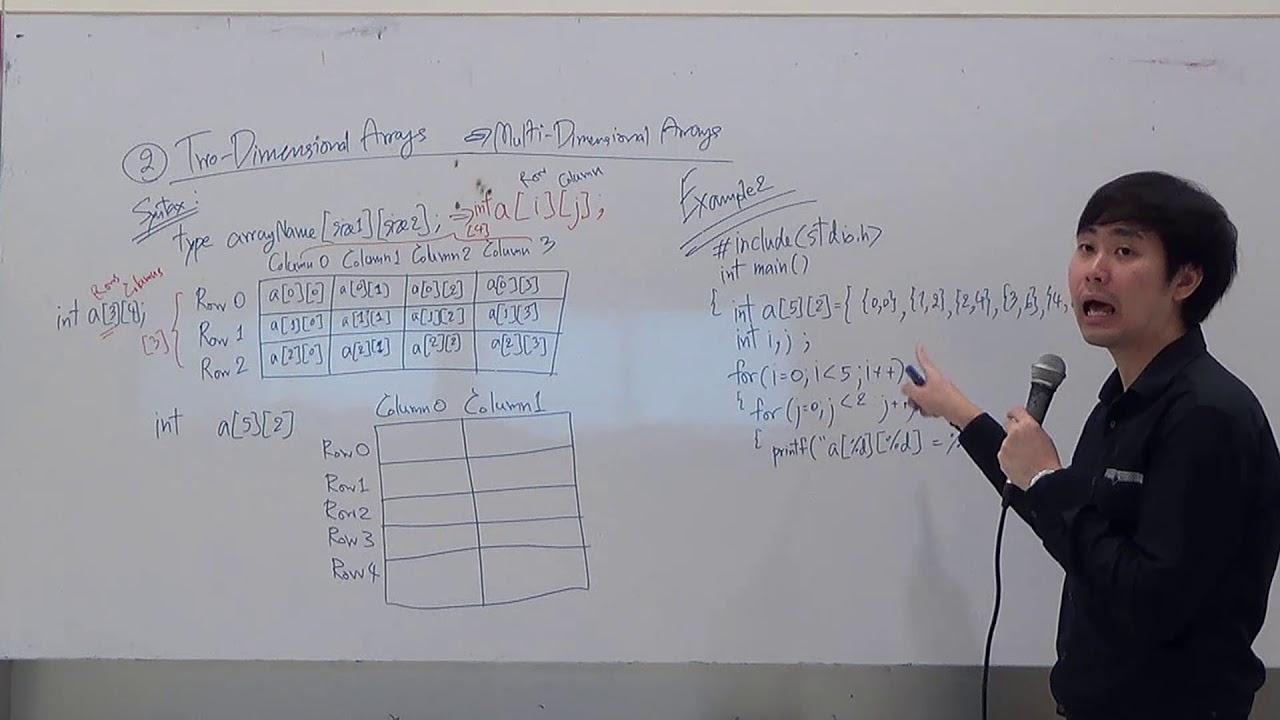 ② Two-Dimensional Arrays ⇒ Multi-Dimensional Arrays
Syntax:
type arrayName[size1][size2]; ⇒ int a[i][j];
Row Column
[4]
Column 0 Column 1 Column 2 Column 3
Rows Columns
int a[3][4];
[3]
Row 0 a[0][0] a[0][1] a[0][2] a[0][3]
Row 1 a[1][0] a[1][1] a[1][2] a[1][3]
Row 2 a[2][0] a[2][1] a[2][2] a[2][3]
int a[5][2]
Column 0 Column 1
Row 0
Row 1
Row 2
Row 3
Row 4
Example 2
#include(stdio.h)
int main()
{ int a[5][2]={ {0,0},{1,2},{2,4},{3,6},{4,
int i,j ;
for(i=0;i<5;i++)
{ for(j=0;j<2 j+
{ printf("a[%d][%d] = %